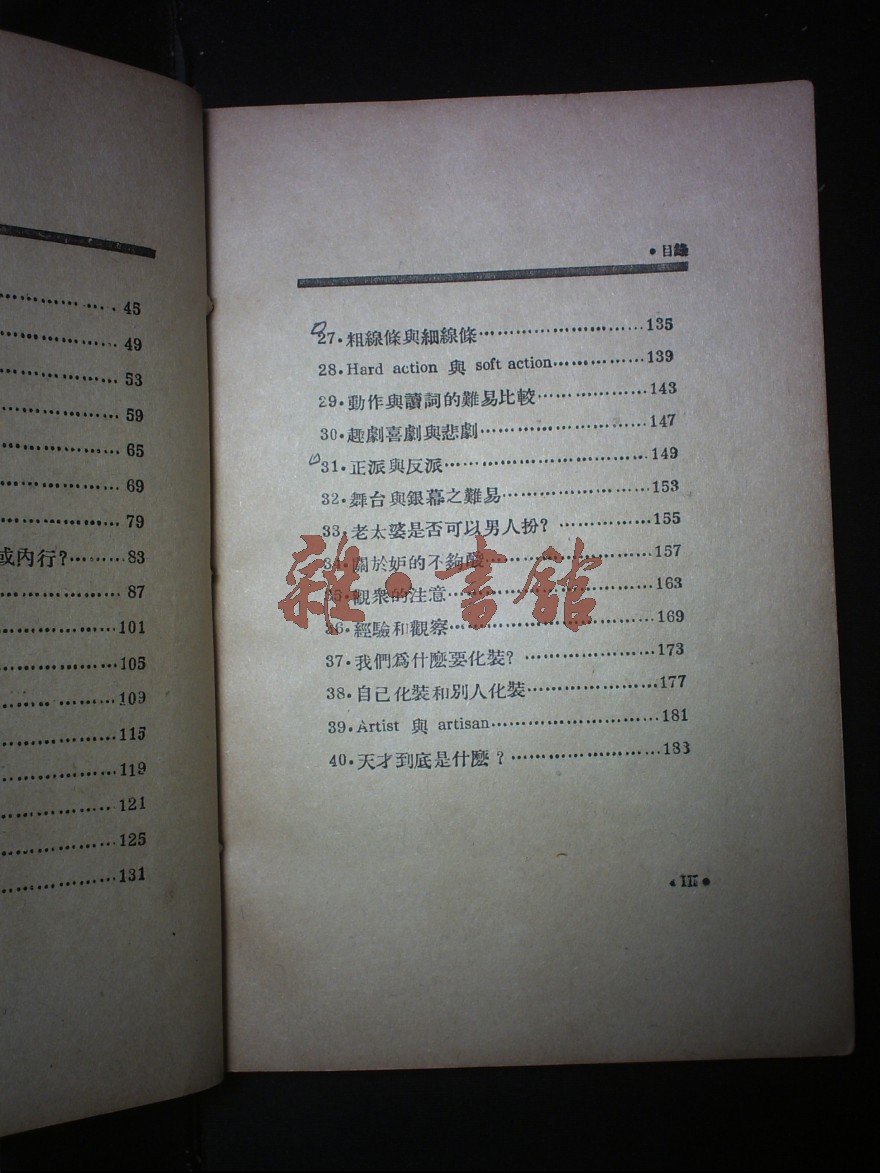 45
49
53
59
65
69
79
或內行?………83
87
101
105
109
115
119
121
125
131
•目錄
27•粗線條與細線條……………………135
28•Hard action 與 soft action……………139
29•動作與讀詞的難易比較………………143
30•趣劇喜劇與悲劇………………………147
31•正派與反派……………………………149
32•舞台與銀幕之難易……………………153
33•老太婆是否可以男人扮?………………155
34•關於妒的不夠酸………………………157
35•觀衆的注意……………………………163
36•經驗和觀察……………………………169
37•我們爲什麽要化裝?……………………173
38•自己化裝和別人化裝…………………177
39•Artist 與 artisan………………………181
40•天才到底是什麽?………………………183
•III•
雜•書館